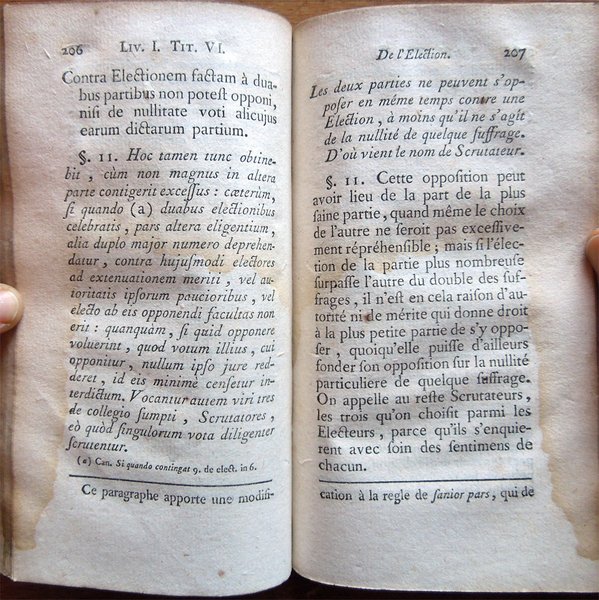 206 Liv. I. Tit. VI.
Contra Electionem factam à dua-
bus partibus non potest opponi,
nisi de nullitate voti alicujus
earum dictarum partium.
§. 11. Hoc tamen tunc obtine-
bit, cùm non magnus in altera
parte contigerit excessus : cæterùm,
si quando (a) duabus electionibus
celebratis, pars altera eligentium,
alia duplo major numero deprehen-
datur, contra hujusmodi electores
ad extenuationem meriti, vel au-
toritatis ipsorum paucioribus, vel
electo ab eis opponendi facultas non
erit : quanquàm, si quid opponere
voluerint, quod votum illius, cui
opponitur, nullum ipso jure red-
deret, id eis minimè censetur in-
terdictum. Vocantur autem viri tres
de collegio sumpti, Scrutatores,
eò quòd singulorum vota diligenter
scrutentur.
(a) Can. Si quando contingat 9. de elect. in 6.
Ce paragraphe apporte une modifi-
De l'Election. 207
Les deux parties ne peuvent s'op-
poser en même temps contre une
Election, à moins qu'il ne s'agît
de la nullité de quelque suffrage.
D'où vient le nom de Scrutateur.
§. 11. Cette opposition peut
avoir lieu de la part de la plus
saine partie, quand même le choix
de l'autre ne seroit pas excessive-
ment répréhensible ; mais si l'élec-
tion de la partie plus nombreuse
surpasse l'autre du double des suf-
frages, il n'est en cela raison d'au-
torité ni de mérite qui donne droit
à la plus petite partie de s'y oppo-
ser, quoiqu'elle puisse d'ailleurs
fonder son opposition sur la nullité
particuliere de quelque suffrage.
On appelle au reste Scrutateurs,
les trois qu'on choisit parmi les
Electeurs, parce qu'ils s'enquie-
rent avec soin des sentimens de
chacun.
cation à la regle de sanior pars, qui de